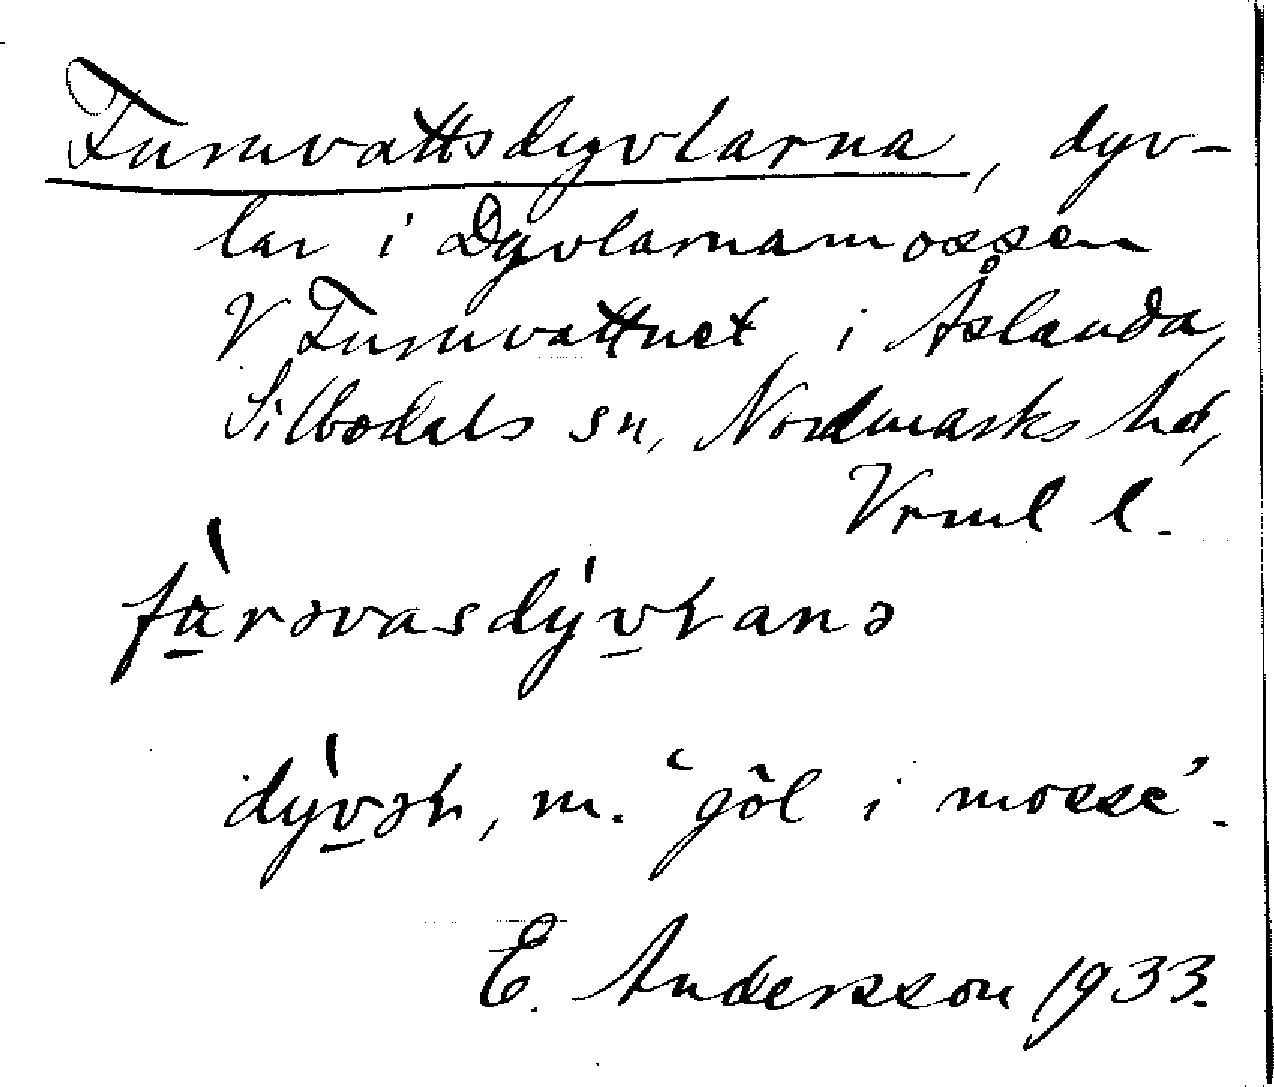 Furuvattsdyvlarna, dyv-
lar i Dyvlarnamossen
V Furuvattnet i Åslanda,
Silbodals sn, Nordmarks hd,
Vrml l.
fu̲rəvasdýv̲ɫanə
dýv̲əɫ, m. ‘göl i mosse’.
E. Andersson 1933.